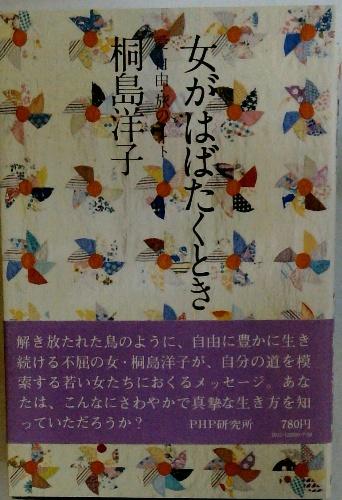 女がはばたくとき
愛・自由・旅のノート
桐島洋子
解き放たれた鳥のように、自由に豊かに生き
続ける不屈の女・桐島洋子が、自分の道を模
索する若い女たちにおくるメッセージ。あな
たは、こんなにさわやかで真摯な生き方を知
っていただろうか？ PHP研究所 780円